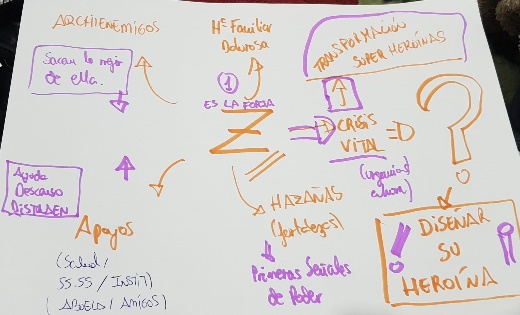 ARCHIENEMIGOS
Sacan lo mejor
de ella.
Hª Familiar
Dolorosa
1
ES LA FORJA
Z
TRANSFORMACIÓN
SUPER HEROÍNAS
CRISIS
VITAL
?
Ayuda
Descanso
Apoyos
(Salud /
SS.SS / INSTIT)
(ABUELO / AMIGOS)
HAZAÑAS
(fortalezas)
Primeras Señales
de Poder
DISEÑAR
SU
HEROÍNA